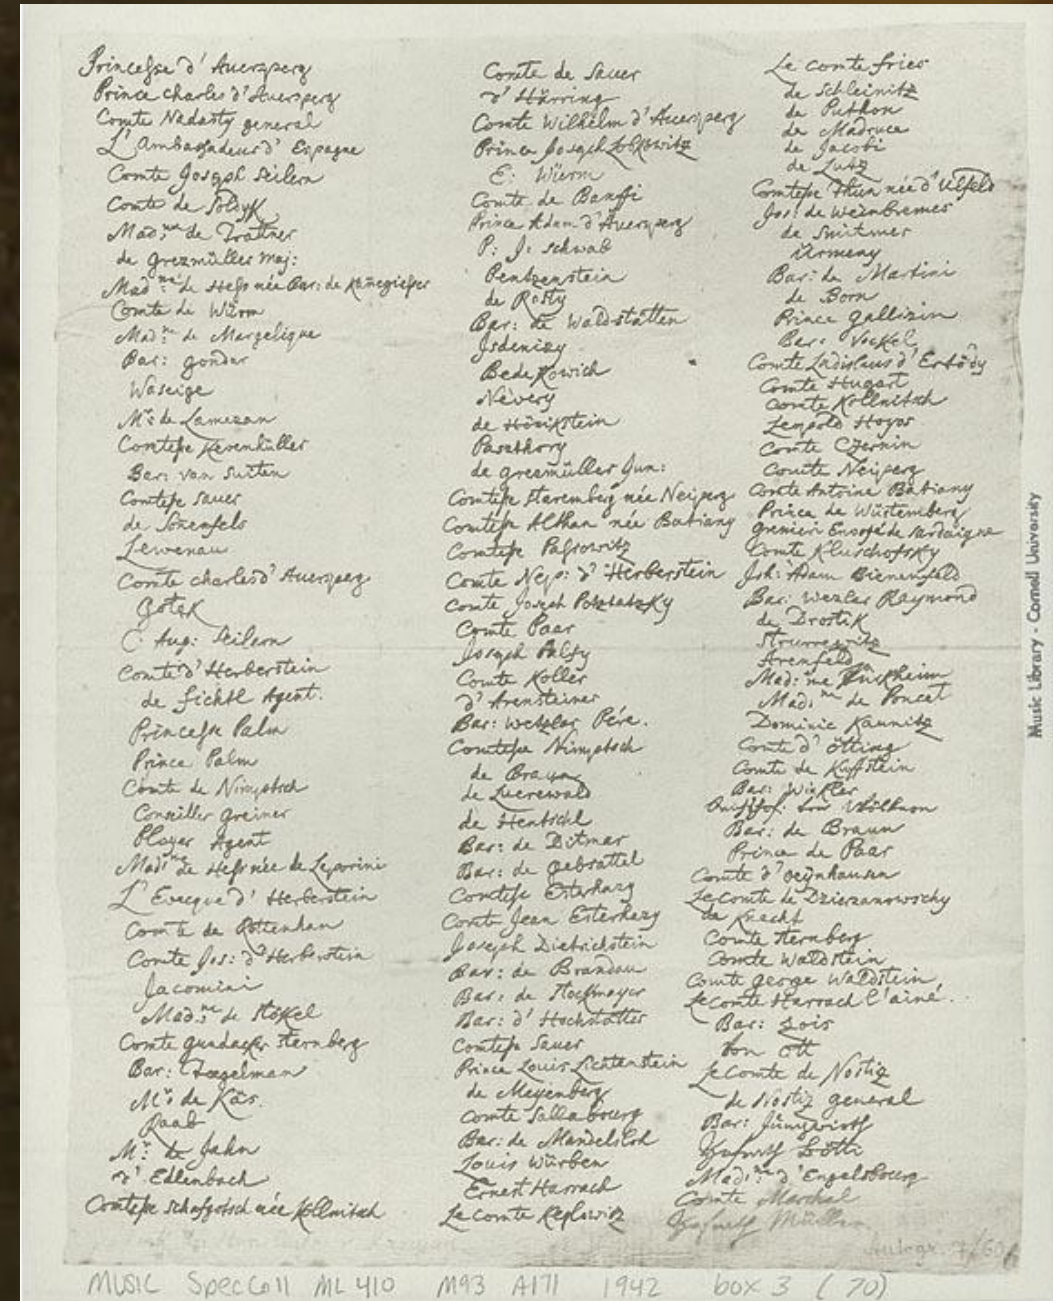 Princesse d'Auersperg
Prince charles d'Auersperg
Comte Nadasty general
L'Ambassadeur d'Espagne
Comte Joseph Seilern
Comte de Soldyk
Mad:me de Trattner
de grezmüller maj:
Mad:me de Hess née Bar: de Kannegiesser
Comte de Würm
Mad:me de Margelique
Bar: gondar
Waseige
Mr: de Lamezan
Comtesse Kevenhüller
Bar: van Suiten
Comtesse Sauer
de Sonenfels
Lewenau
Comte charles d'Auersperg
Gotek
C: Aug: Seilern
Comte d'Herberstein
de fichtl Agent.
Princesse Palm
Prince Palm
Comte de Nimptsch
Conseiller greiner
Ployer Agent
Mad:me de Hess née de Leporini
L'Evecque d'Herberstein
Comte de Rottenhan
Comte Jos: d'Herberstein
Jacomini
Mad:me de Stökel
Comte gundacker Sternberg
Bar:
Mr: de Käs.
Raab
Mr: de Jahn
d'Edlenbach
Comtesse Schafgotsch née Kollnitsch
Comte de Sauer
d'Häring
Comte Wilhelm d'Auersperg
Prince Joseph Lobkowitz
E: Würm
Comte de Banffi
Prince Adam d'Auersperg
P: J: Schwab
Pentzenstein
de Rosty
Bar: de Waldstätten
Isdenizy
Bedekowich
Nevery
de Hönikstein
Paszthory
de grezmüller Jun:
Comtesse Staremberg née Neiperg
Comtesse Althan née Batiany
Comtesse Passowitz
Comte Nep: d'Herberstein
Comte Joseph Potztatzky
Comte Paar
Joseph Palfy
Comte Koller
d'Arensteiner
Bar: Wetzlar Pére.
Comtesse Nimptsch
de Braun
de Luerewald
de Hentschl
Bar: de Ditmar
Bar: de gebsattel
Comtesse Esterhazy
Comte Jean Esterhazy
Joseph Dietrichstein
Bar: de Brandau
Bar: de Stockmayer
Bar: d'Hochstätter
Comtesse Sauer
Prince Louis Lichtenstein
de Meyenberg
Comte Sallabourg
Bar: de Mandelsloh
Louis Würben
Ernest Harrach
Le Comte Keglowitz
Le comte fries
de Schleinitz
de Puthon
de Madruca
de Jacobi
de Lutz
Comtesse Thun née d'Ulfeld
Jos: de Weinbremes
de Smitmer
Ürmeny
Bar: de Martini
de Born
Prince gallizin
Bar: Vockel
Comte Ladislaus d'Erbödy
Comte Hugart
Comte Kollnitsch
Leopold Hoyos
Comte Czernin
Comte Neiperg
Comte Antoine Batiany
Prince de Würtemberg
grenieri Envoyé de Sardaigne
Comte Kluschofsky
Joh: Adam Bienenfeld
Bar: Wezlar Raymond
de Drostik
Arenfeld
Mad:me Türkheim
Mad:me de Poncet
Dominic Kaunitz
Comte d'Ötting
Comte de Kuffstein
Bar: Winkler
Bar: de Braun
Prince de Paar
Comte d'Oeynhausen
Le comte de Dzierzanowschy
de Knecht
Comte Sternberg
Comte Waldstein
Comte george Waldstein
Le Comte Harrach l'ainé.
Bar: Zois
von Ott
Le Comte de Nostiz
de Nostiz general
Bar: Jungwirth
Mad:me d'Engelsbourg
Comte Marchal
Müller.
Autogr. 7/60
Music Library - Cornell University
MUSIC SpecColl ML 410 M93 A171 1942 box 3 (70)